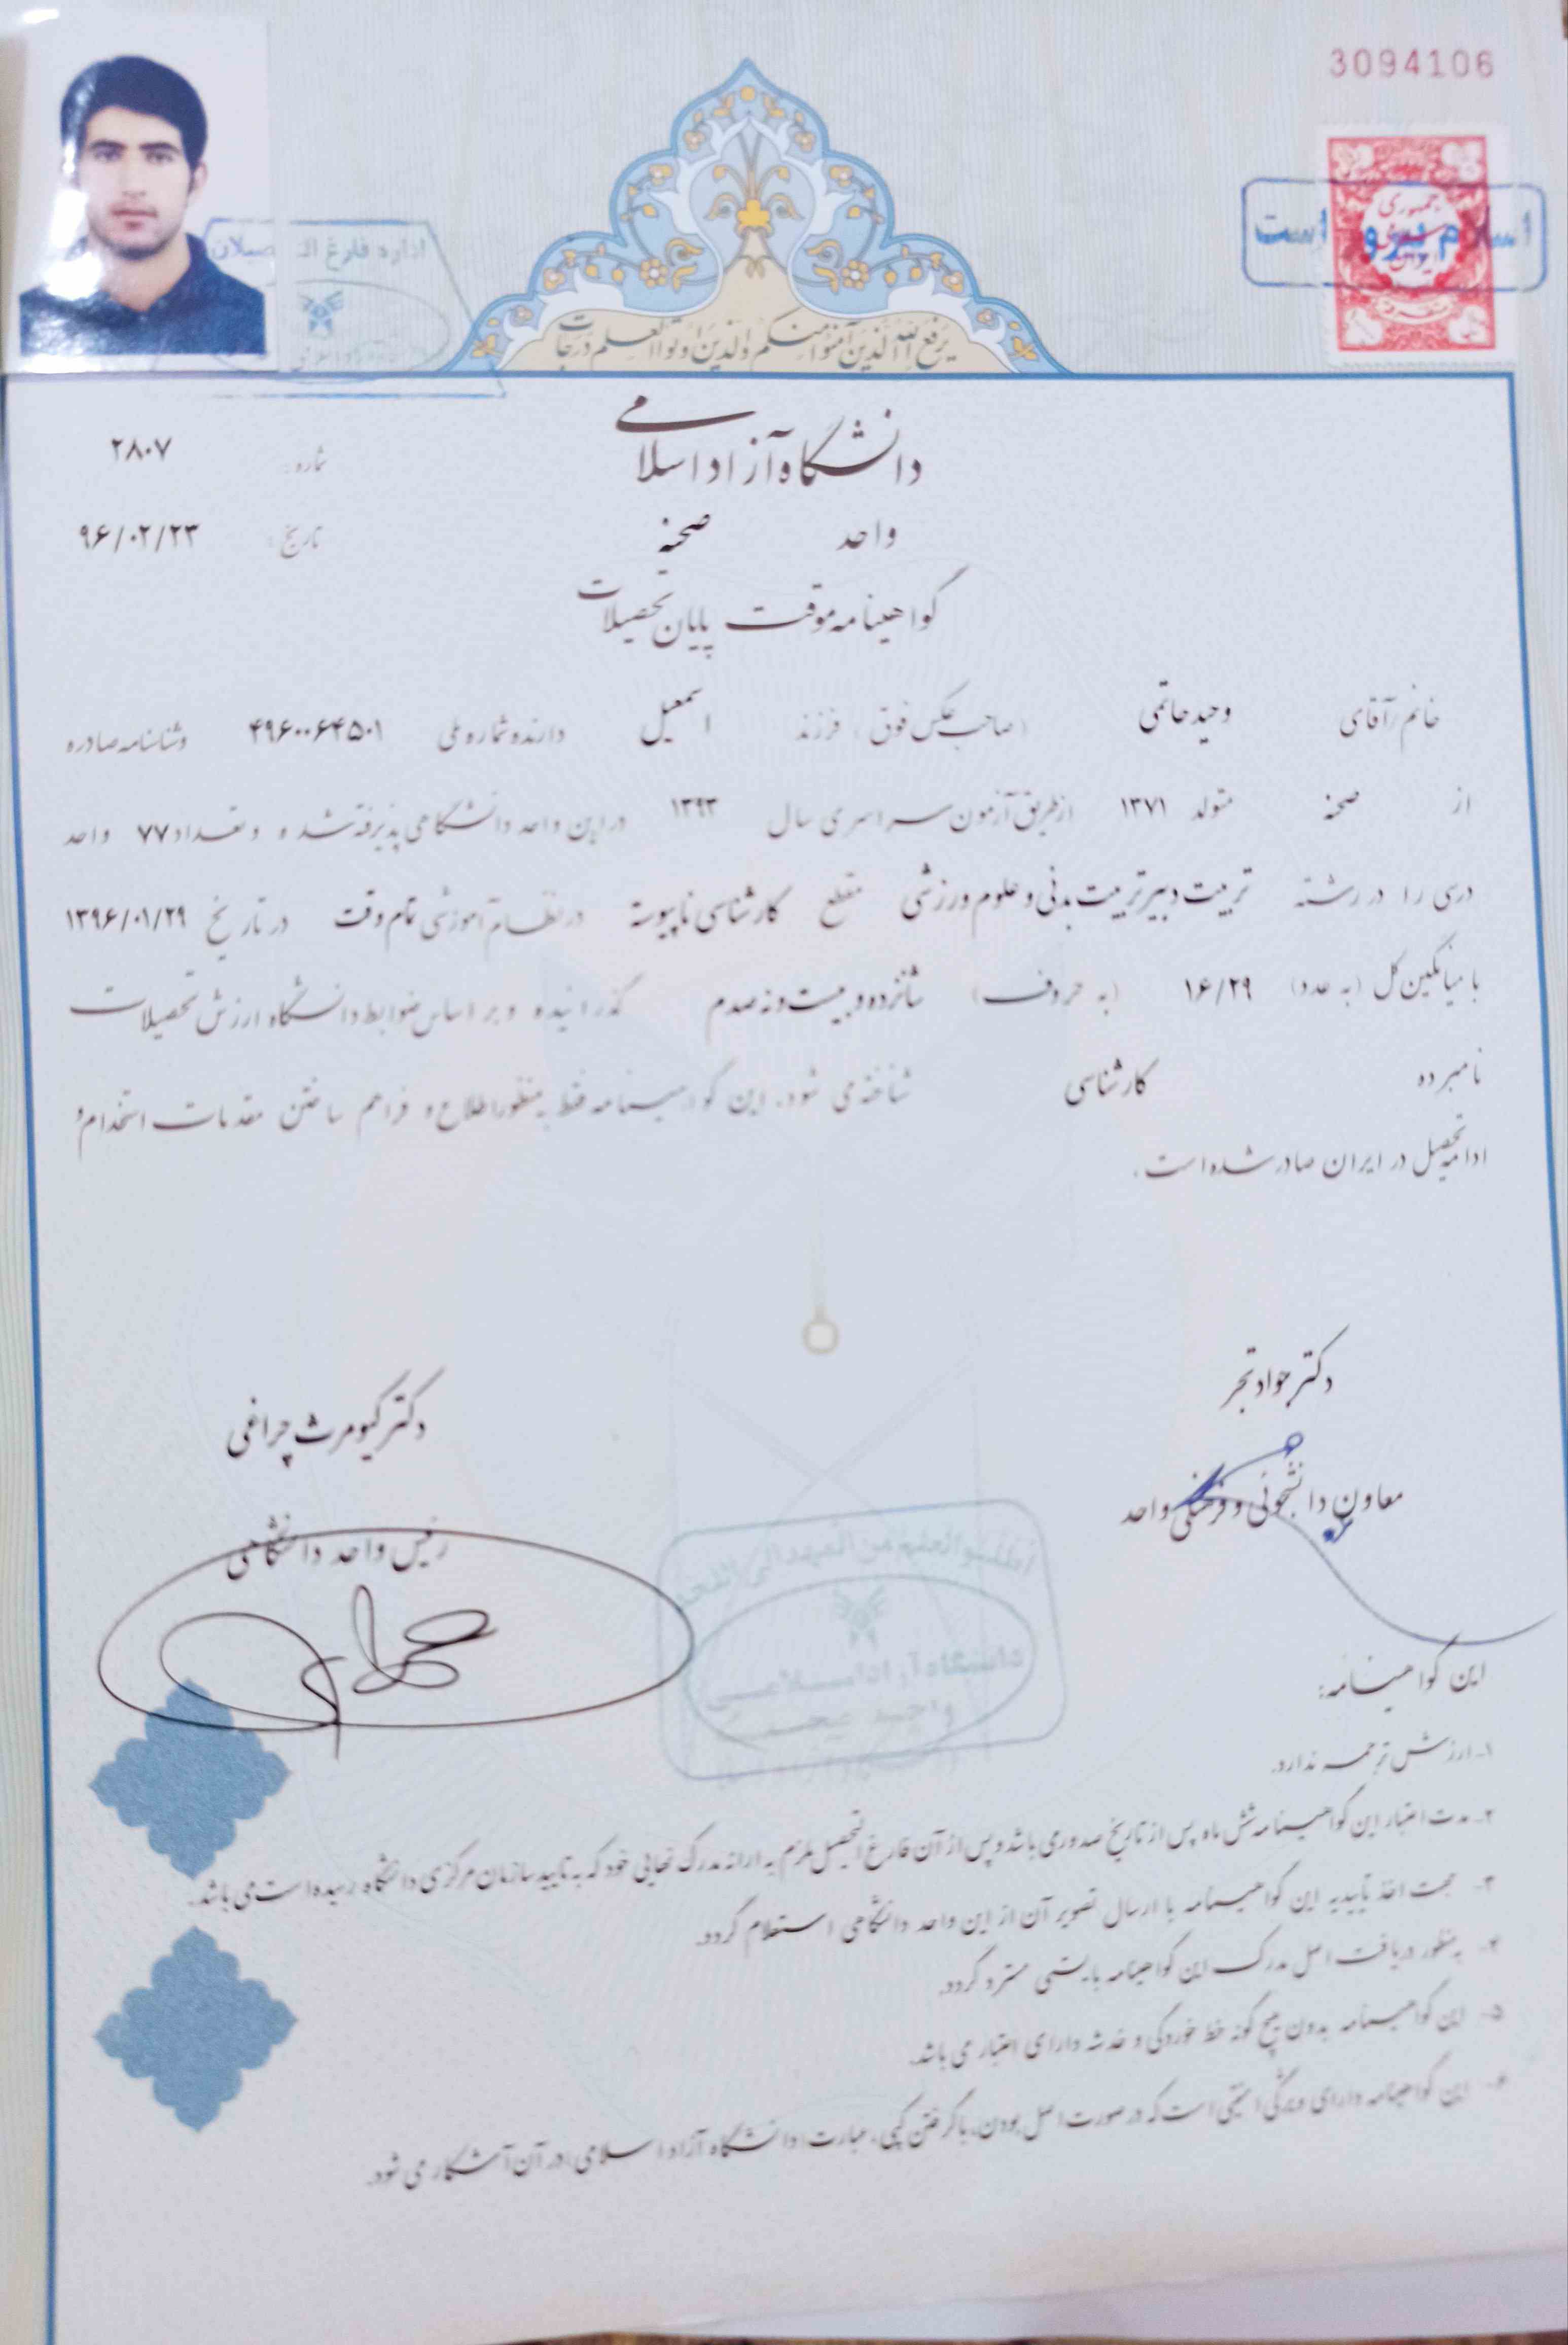 3094106
جمهوری اسلامی ایران
اداره فارغ التحصیلان
یرفع الله الذین آمنوا منکم والذین اوتوا العلم درجات
دانشگاه آزاد اسلامی
شماره: ۲۸۰۷
واحد صحنه
تاریخ: ۹۶/۰۲/۲۳
گواهینامه موقت پایان تحصیلات
خانم/آقای وحید حاتمی (صاحب عکس فوق) فرزند اسمعیل دارنده شماره ملی ۴۹۶۰۰۶۴۵۰۱ و شناسنامه صادره
از صحنه متولد ۱۳۷۱ از طریق آزمون سراسری سال ۱۳۹۳ در این واحد دانشگاهی پذیرفته شده و تعداد ۷۷ واحد
درسی را در رشته تربیت دبیر تربیت بدنی و علوم ورزشی مقطع کارشناسی ناپیوسته در نظام آموزشی تمام وقت در تاریخ ۱۳۹۶/۰۱/۲۹
با میانگین کل (به عدد) ۱۶/۲۹ (به حروف) شانزده و بیست و نه صدم گذرانیده و بر اساس ضوابط دانشگاه ارزش تحصیلات
نامبرده کارشناسی شناخته می شود. این گواهینامه فقط به منظور اطلاع و فراهم ساختن مقدمات استخدام و
ادامه تحصیل در ایران صادر شده است.
دکتر جواد تجر
معاون دانشجوئی و فرهنگی واحد
دکتر کیومرث چراغی
رئیس واحد دانشگاهی
اطلبوا العلم من المهد الی اللحد
دانشگاه آزاد اسلامی
واحد صحنه
این گواهینامه:
۱- ارزش ترجمه ندارد.
۲- مدت اعتبار این گواهینامه شش ماه پس از تاریخ صدور می باشد و پس از آن فارغ التحصیل ملزم به ارائه مدرک نهایی خود که به تایید سازمان مرکزی دانشگاه رسیده است می باشد.
۳- جهت اخذ تاییدیه این گواهینامه با ارسال تصویر آن از این واحد دانشگاهی استعلام گردد.
۴- به منظور دریافت اصل مدرک این گواهینامه بایستی مسترد گردد.
۵- این گواهینامه بدون هیچ گونه خط خوردگی و خدشه دارای اعتبار می باشد.
۶- این گواهینامه دارای ویژگی امنیتی است که در صورت اصل بودن، با گرفتن کپی، عبارت دانشگاه آزاد اسلامی در آن آشکار می شود.